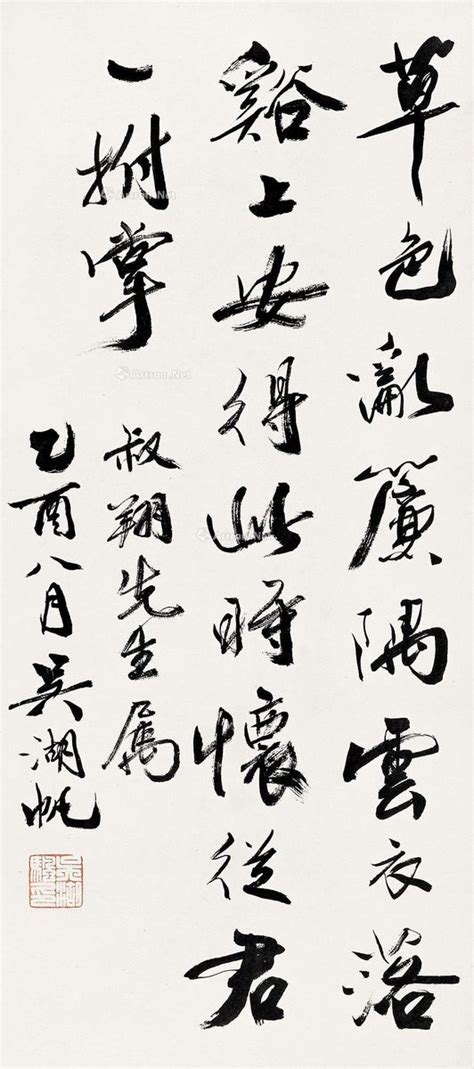 草色瀛簾隅雲衣落
谿上安得此時懷從君
一拊掌
叔翔先生属
乙酉八月吳湖帆
Artron.Net
Artron.Net